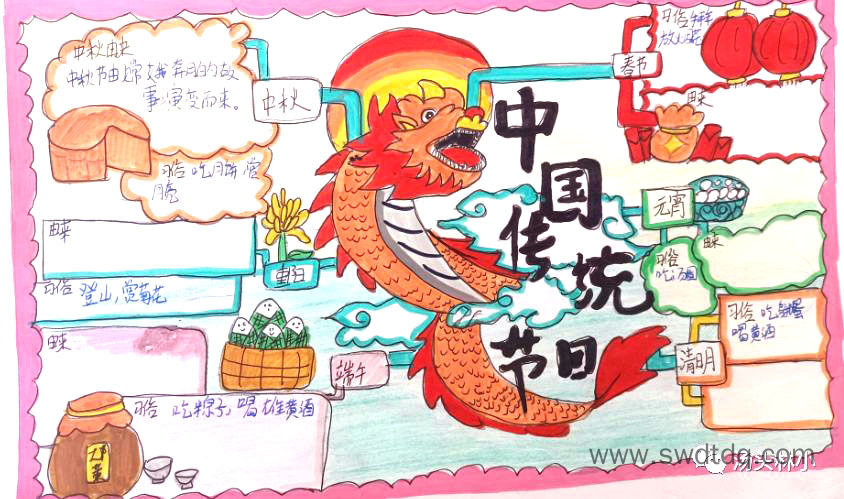 中秋由来
中秋节由嫦娥奔月的故
事演变而来。
中秋
习俗 吃月饼,赏
月亮
由来
习俗 登山,赏菊花
重阳
由来
端午
习俗 吃粽子,喝雄黄酒
中国传统节日
春节
习俗
由来
元宵
由来
习俗
吃汤圆
清明
习俗 吃
喝黄酒
www.swdtdq.com